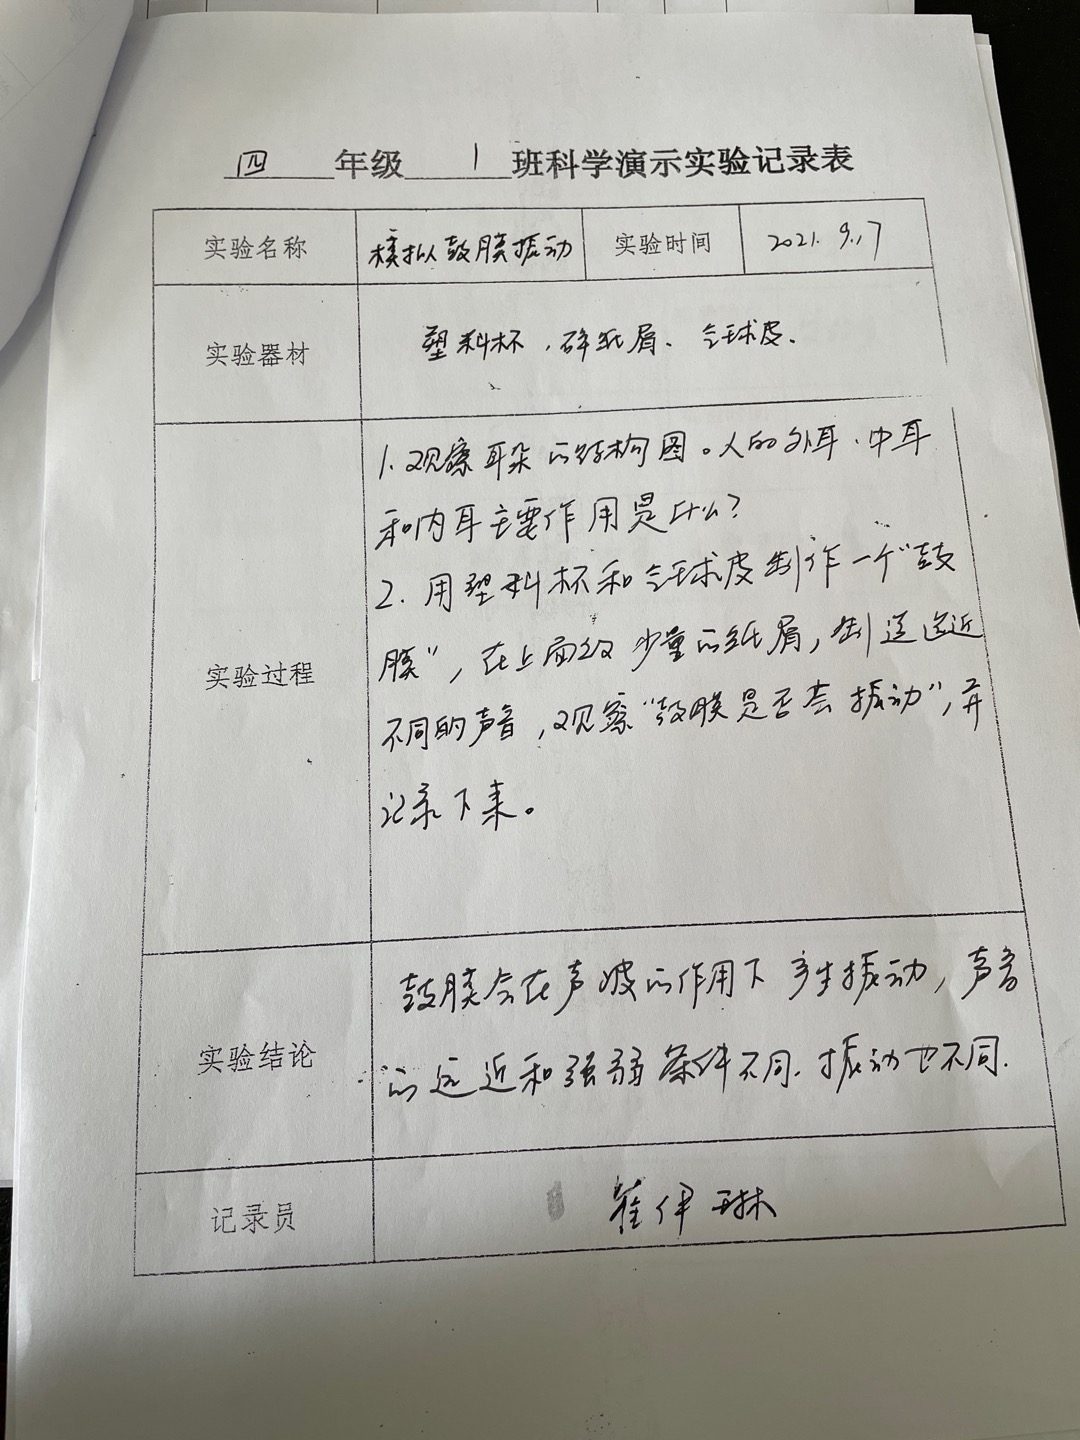 四年级1班科学演示实验记录表
实验名称 模拟鼓膜振动 实验时间 2021.9.17
实验器材 塑料杯、碎纸屑、气球皮.
1.观察耳朵的结构图。人的外耳、中耳
和内耳主要作用是什么?
2.用塑料杯和气球皮制作一个“鼓
实验过程
膜”,在上面放少量的纸屑,制造远近
不同的声音,观察“鼓膜是否会振动”,并
记录下来。
鼓膜会在声波的作用下产生振动,声音
实验结论
的远近和强弱条件不同.振动也不同.
记录员 崔伊琳